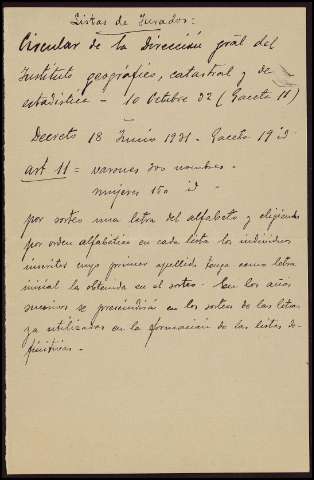 Listas de Jurados:
Circular de la Dirección gral del
Instituto geográfico, catastral y de
estadística - 10 Octubre 32 (Gaceta 11)
Decreto 18 Junio 1931 - Gaceta 19 id
art 11 = varones 300 nombres -
mujeres 150 id -
por sorteo una letra del alfabeto y eligiendo
por orden alfabético en cada lista los individuos
inscritos cuyo primer apellido tenga como letra
inicial la obtenida en el sorteo - En los años
sucesivos se prescindirá en los sorteos de las letras
ya utilizadas en la formación de las listas de-
finitivas -